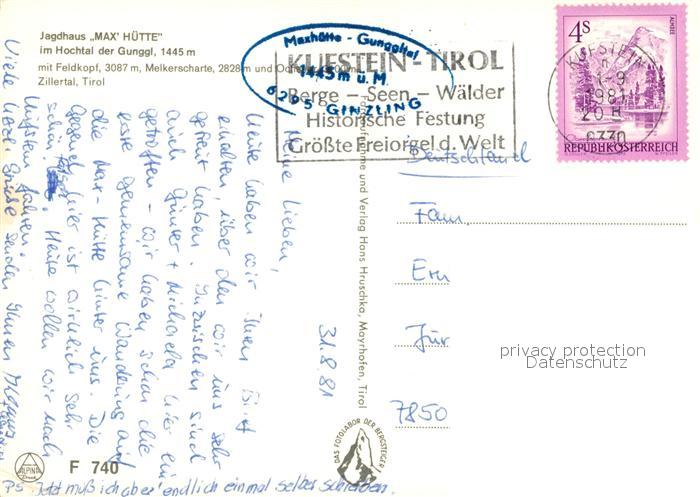 Jagdhaus „MAX' HÜTTE"
im Hochtal der Gunggl, 1445 m
mit Feldkopf, 3087 m, Melkerscharte, 2828 m und
Zillertal, Tirol
Maxhütte - Gungglital
1445 m ü. M.
6295 GINZLING
KUFSTEIN - TIROL
Berge - Seen - Wälder
Historische Festung
Größte Freiorgel d. Welt
4S
ALMSEE
REPUBLIK ÖSTERREICH
KUFSTEIN
1-9
1981
20 H
6330
Deutschland
Fam.
Ern
Jür
7850
privacy protection
Datenschutz
31.8.81
Meine Lieben,
Heute haben wir Ihren Brief
erhalten, über den wir uns sehr
gefreut haben. Inzwischen sind
auch Günter + Michaela hier ein-
getroffen - wir haben schon die
erste gemeinsame Wanderung auf
die Max-Hütte hinter uns. Die
Gegend hier ist wirklich sehr
schön. Heute wollen wir nach
Kufstein fahren.
Viele liebe Grüße senden Ihnen
PS Jetzt muß ich aber endlich einmal selber schreiben.
Verlag Hans Hruschka, Mayrhofen, Tirol
DAS FOTOLABOR DER BERGSTEIGER
ALPINA
Druck
F 740